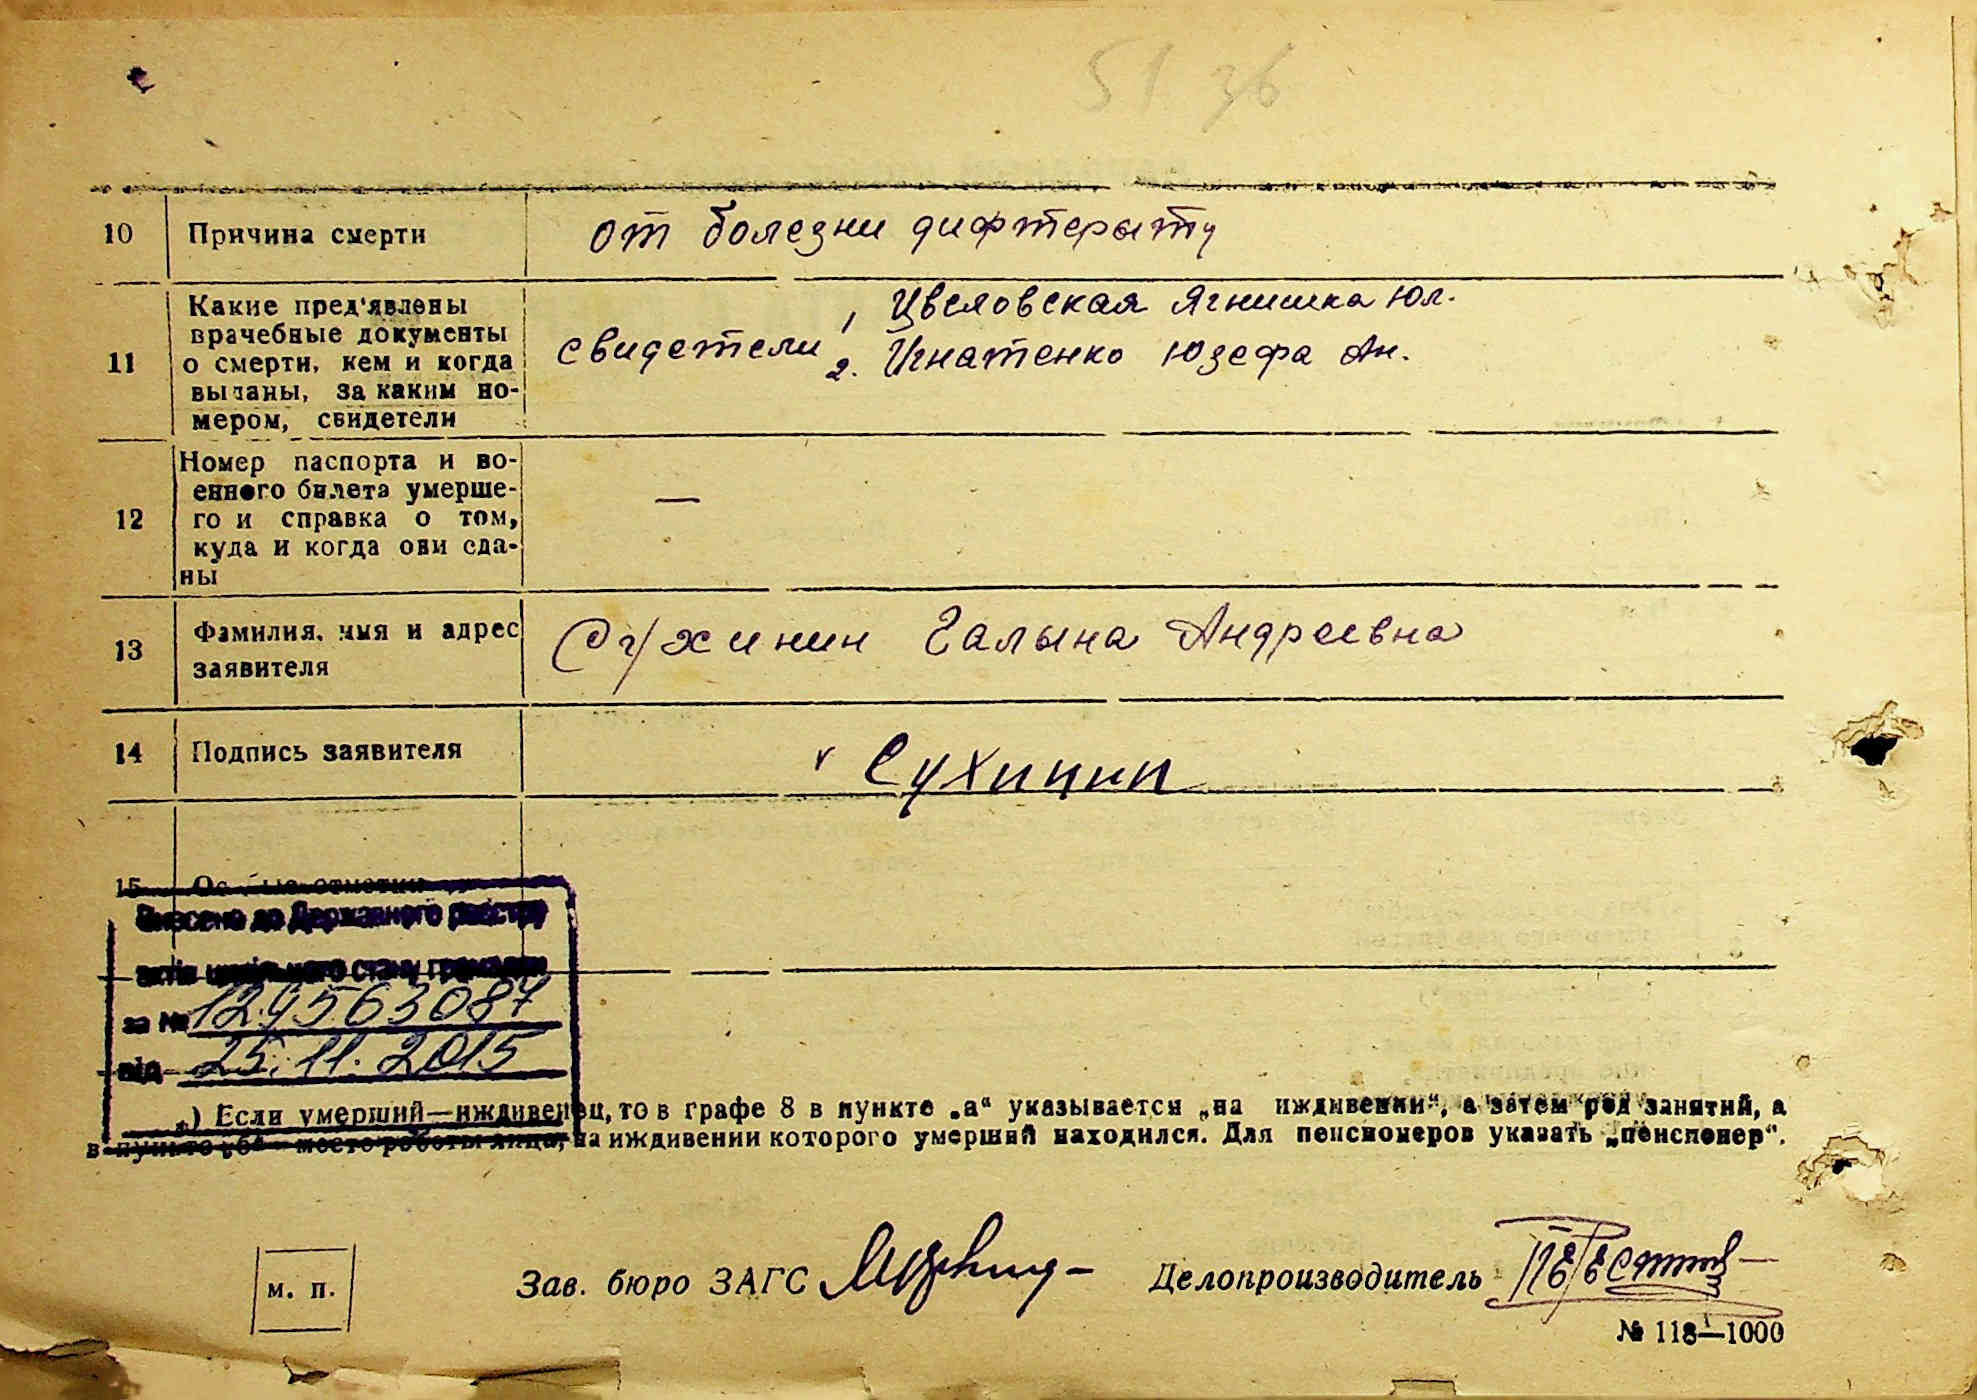 51 36
10 Причина смерти от болезни дифтерыту
11 Какие пред'явлены врачебные документы о смерти, кем и когда выданы, за каким номером, свидетели
свидетели 1, Цвеловская Ягнишка Юл.
2. Игнатенко Юзефа Ан.
12 Номер паспорта и во-
енного билета умерше-
го и справка о том,
куда и когда они сда-
ны —
13 Фамилия, имя и адрес
заявителя Сухинин Галына Андреевна
14 Подпись заявителя v Сухинин
15 Особые отметки
Внесено до Державного реєстру
актів цивільного стану громадян
за № 129563087
від 25.11.2015
„) Если умерший—иждивенец, то в графе 8 в пункте „а“ указывается „на иждивении“, а затем род занятий, а
в пункте „б“ — место работы лица, на иждивении которого умерший находился. Для пенсионеров указать „пенсионер“.
м. п. Зав. бюро ЗАГС Делопроизводитель
№ 118—1000